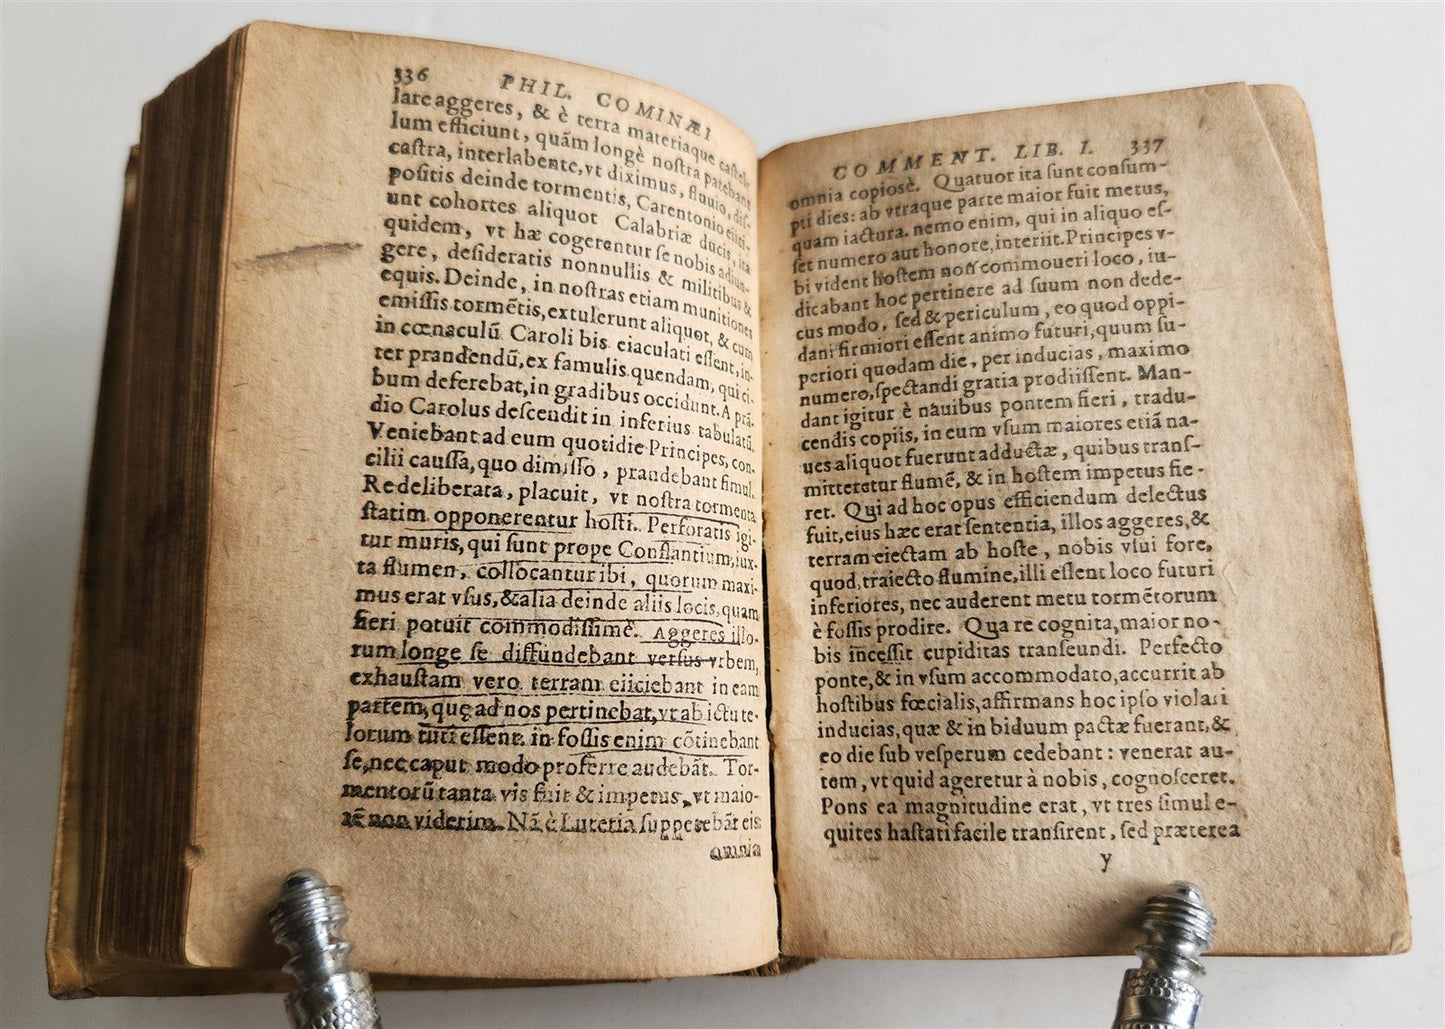 336 PHIL. COMINÆI
lare aggeres, & è terra materiaque castel-
lum efficiunt, quãm longè nostra patebant
castra, interlabente, vt diximus, fluuio, dis-
positis deinde tormentis, Carentonio eiici-
unt cohortes aliquot Calabriæ ducis, ita
quidem, vt hæ cogerentur se nobis adiun-
gere, desideratis nonnullis & militibus &
equis. Deinde, in nostras etiam munitiones
emissis tormẽtis, extulerunt aliquot, & cum
in cœnaculũ Caroli bis eiaculati essent, in-
ter prandendũ, ex famulis quendam, qui ci-
bum deferebat, in gradibus occidunt. A prã-
dio Carolus descendit in inferius tabulatũ.
Veniebant ad eum quotidie Principes, con-
cilii caussa, quo dimisso, prandebant simul.
Re deliberata, placuit, vt nostra tormenta
statim opponerentur hosti. Perforatis igi-
tur muris, qui sunt prope Constantium, iux-
ta flumen, collocantur ibi, quorum maxi-
mus erat vsus, & alia deinde aliis locis, quam
fieri potuit commodissimè. Aggeres illo-
rum longe se diffundebant versus vrbem,
exhaustam vero terram eiiciebant in eam
partem, que ad nos pertinebat, vt ab ictu te-
lorum tuti essent. in fossis enim cõtinebant
se, nec caput modo proferre audebãt. Tor-
mentorũ tanta vis fuit & impetus, vt maio-
rẽ non viderim. Nã è Luteria suppetebãt eis
omnia
COMMENT. LIB. I. 337
omnia copiosè. Quatuor ita sunt consum-
pti dies: ab vtraque parte maior fuit metus,
quam iactura. nemo enim, qui in aliquo es-
set numero aut honore, interiit. Principes v-
bi vident hostem non commoueri loco, iu-
dicabant hoc pertinere ad suum non dede-
cus modo, sed & periculum, eo quod oppi-
dani firmiori essent animo futuri, quum su-
periori quodam die, per inducias, maximo
numero, spectandi gratia prodiissent. Man-
dant igitur è nauibus pontem fieri, tradu-
cendis copiis, in eum vsum maiores etiã na-
ues aliquot fuerunt adductæ, quibus trans-
mitteretur flumẽ, & in hostem impetus fie-
ret. Qui ad hoc opus efficiendum delectus
fuit, eius hæc erat sententia, illos aggeres, &
terram eiectam ab hoste, nobis vsui fore,
quod, traiecto flumine, illi essent loco futuri
inferiores, nec auderent metu tormẽtorum
è fossis prodire. Qua re cognita, maior no-
bis incessit cupiditas transeundi. Perfecto
ponte, & in vsum accommodato, accurrit ab
hostibus fœcialis, affirmans hoc ipso violari
inducias, quæ & in biduum pactæ fuerant, &
eo die sub vesperum cedebant: venerat au-
tem, vt quid ageretur à nobis, cognosceret.
Pons ea magnitudine erat, vt tres simul e-
quites hastati facile transirent, sed præterea
y